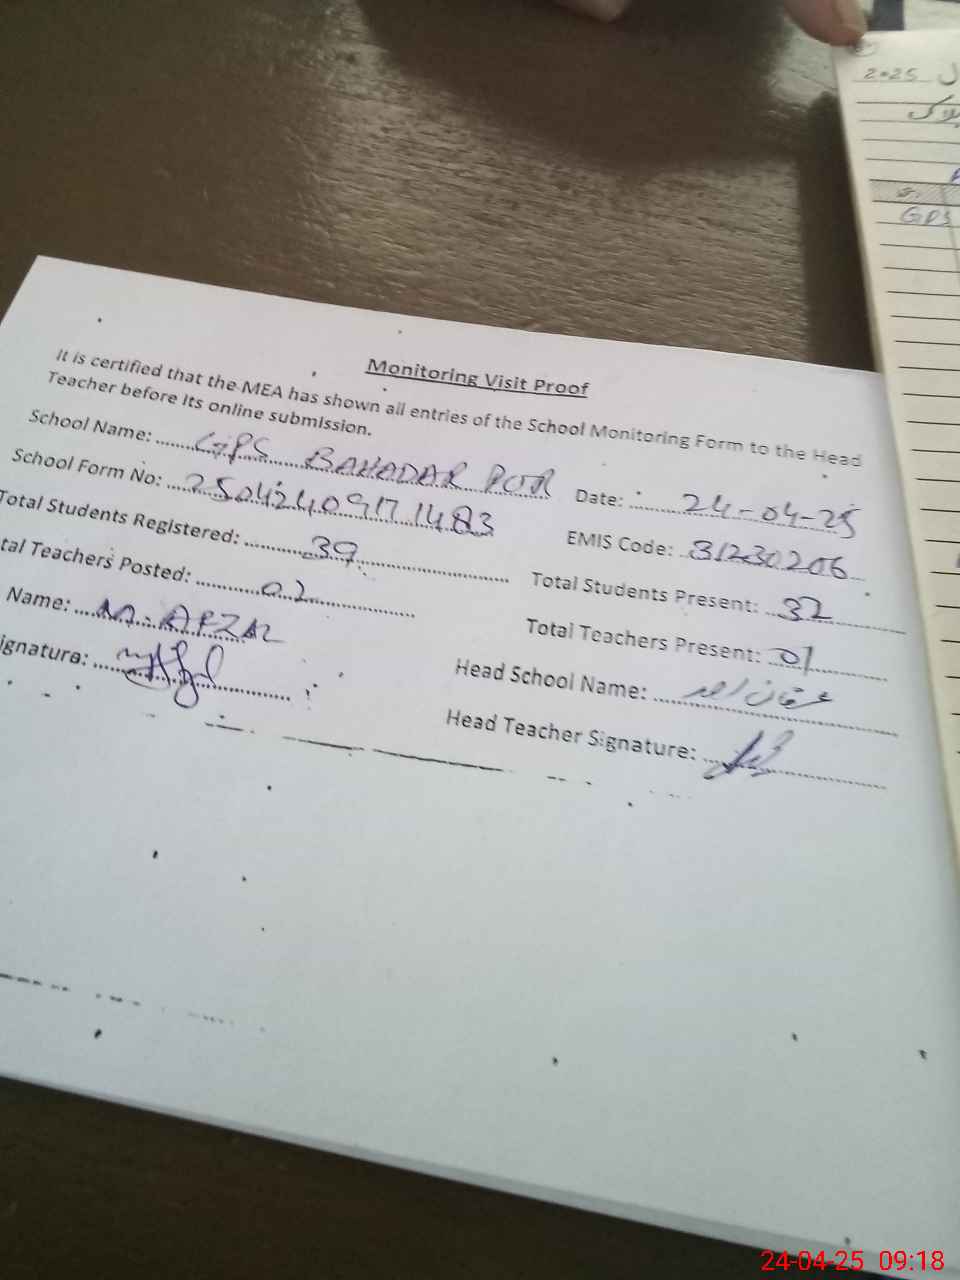 Monitoring Visit Proof
It is certified that the MEA has shown all entries of the School Monitoring Form to the Head
Teacher before its online submission.
School Name: GPS BAHADAR PUR Date: 24-04-25
School Form No: 2504240917 1483 EMIS Code: 31230206
Total Students Registered: 39 Total Students Present: 32
tal Teachers Posted: 02 Total Teachers Present: 01
Name: M. AFZAL Head School Name:
ignature: Head Teacher Signature:
2025
GPS
24-04-25 09:18